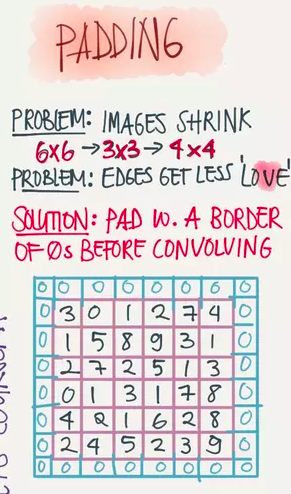 PADDING
PROBLEM: IMAGES SHRINK
6x6 → 3x3 → 4x4
PROBLEM: EDGES GET LESS 'LOVE'
SOLUTION: PAD W. A BORDER
OF 0s BEFORE CONVOLVING
0 0 0 0 0 0 0 0
0 3 0 1 2 7 4 0
0 1 5 8 9 3 1 0
0 2 7 2 5 1 3 0
0 0 1 3 1 7 8 0
0 4 2 1 6 2 8 0
0 2 4 5 2 3 9 0
0 0 0 0 0 0 0 0